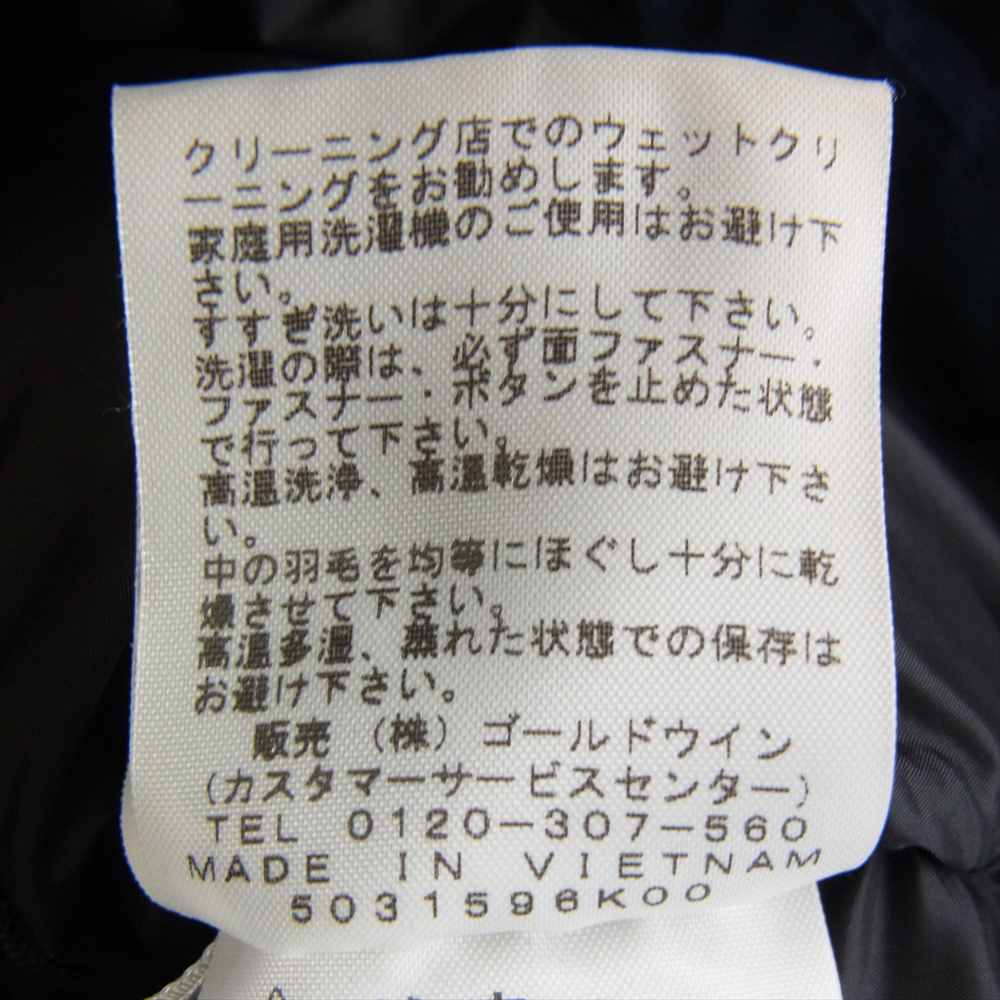 クリーニング店でのウェットクリ
ーニングをお勧めします。
家庭用洗濯機のご使用はお避け下
さい。
すすぎ洗いは十分にして下さい。
洗濯の際は、必ず面ファスナー・
ファスナー・ボタンを止めた状態
で行って下さい。
高温洗浄、高温乾燥はお避け下さ
い。
中の羽毛を均等にほぐし十分に乾
燥させて下さい。
高温多湿、蒸れた状態での保存は
お避け下さい。
販売 (株) ゴールドウイン
(カスタマーサービスセンター)
TEL 0120-307-560
MADE IN VIETNAM
5031596K00